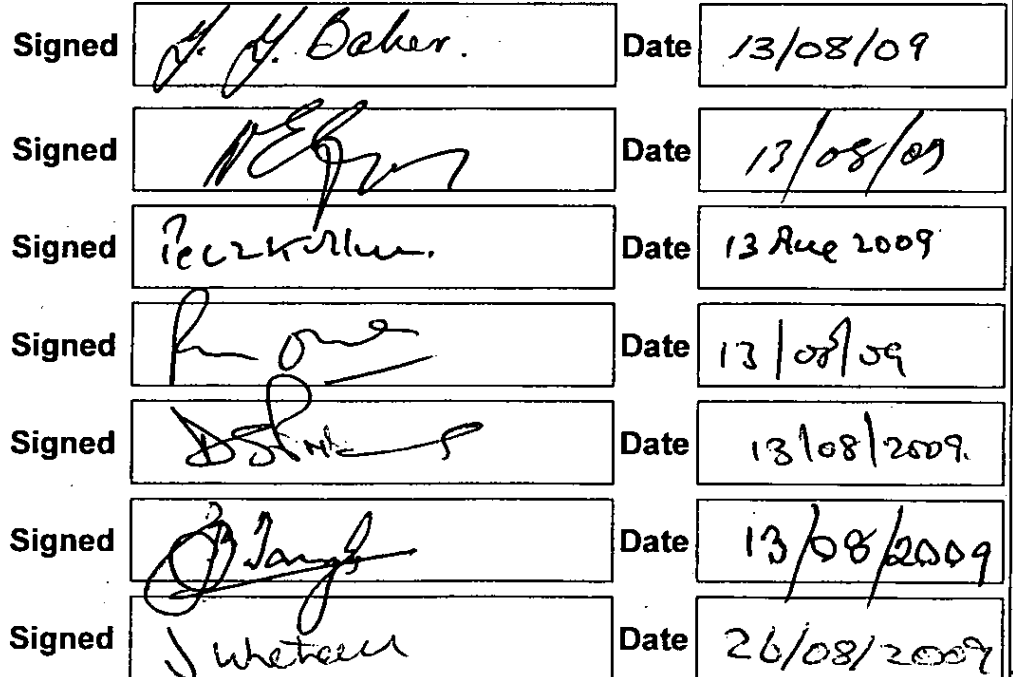 Signed Y. Y. Baker. Date 13/08/09
Signed Date 13/08/09
Signed Date 13 Aug 2009
Signed Date 13/08/09
Signed Date 13/08/2009.
Signed Date 13/08/2009
Signed J Date 26/08/2009